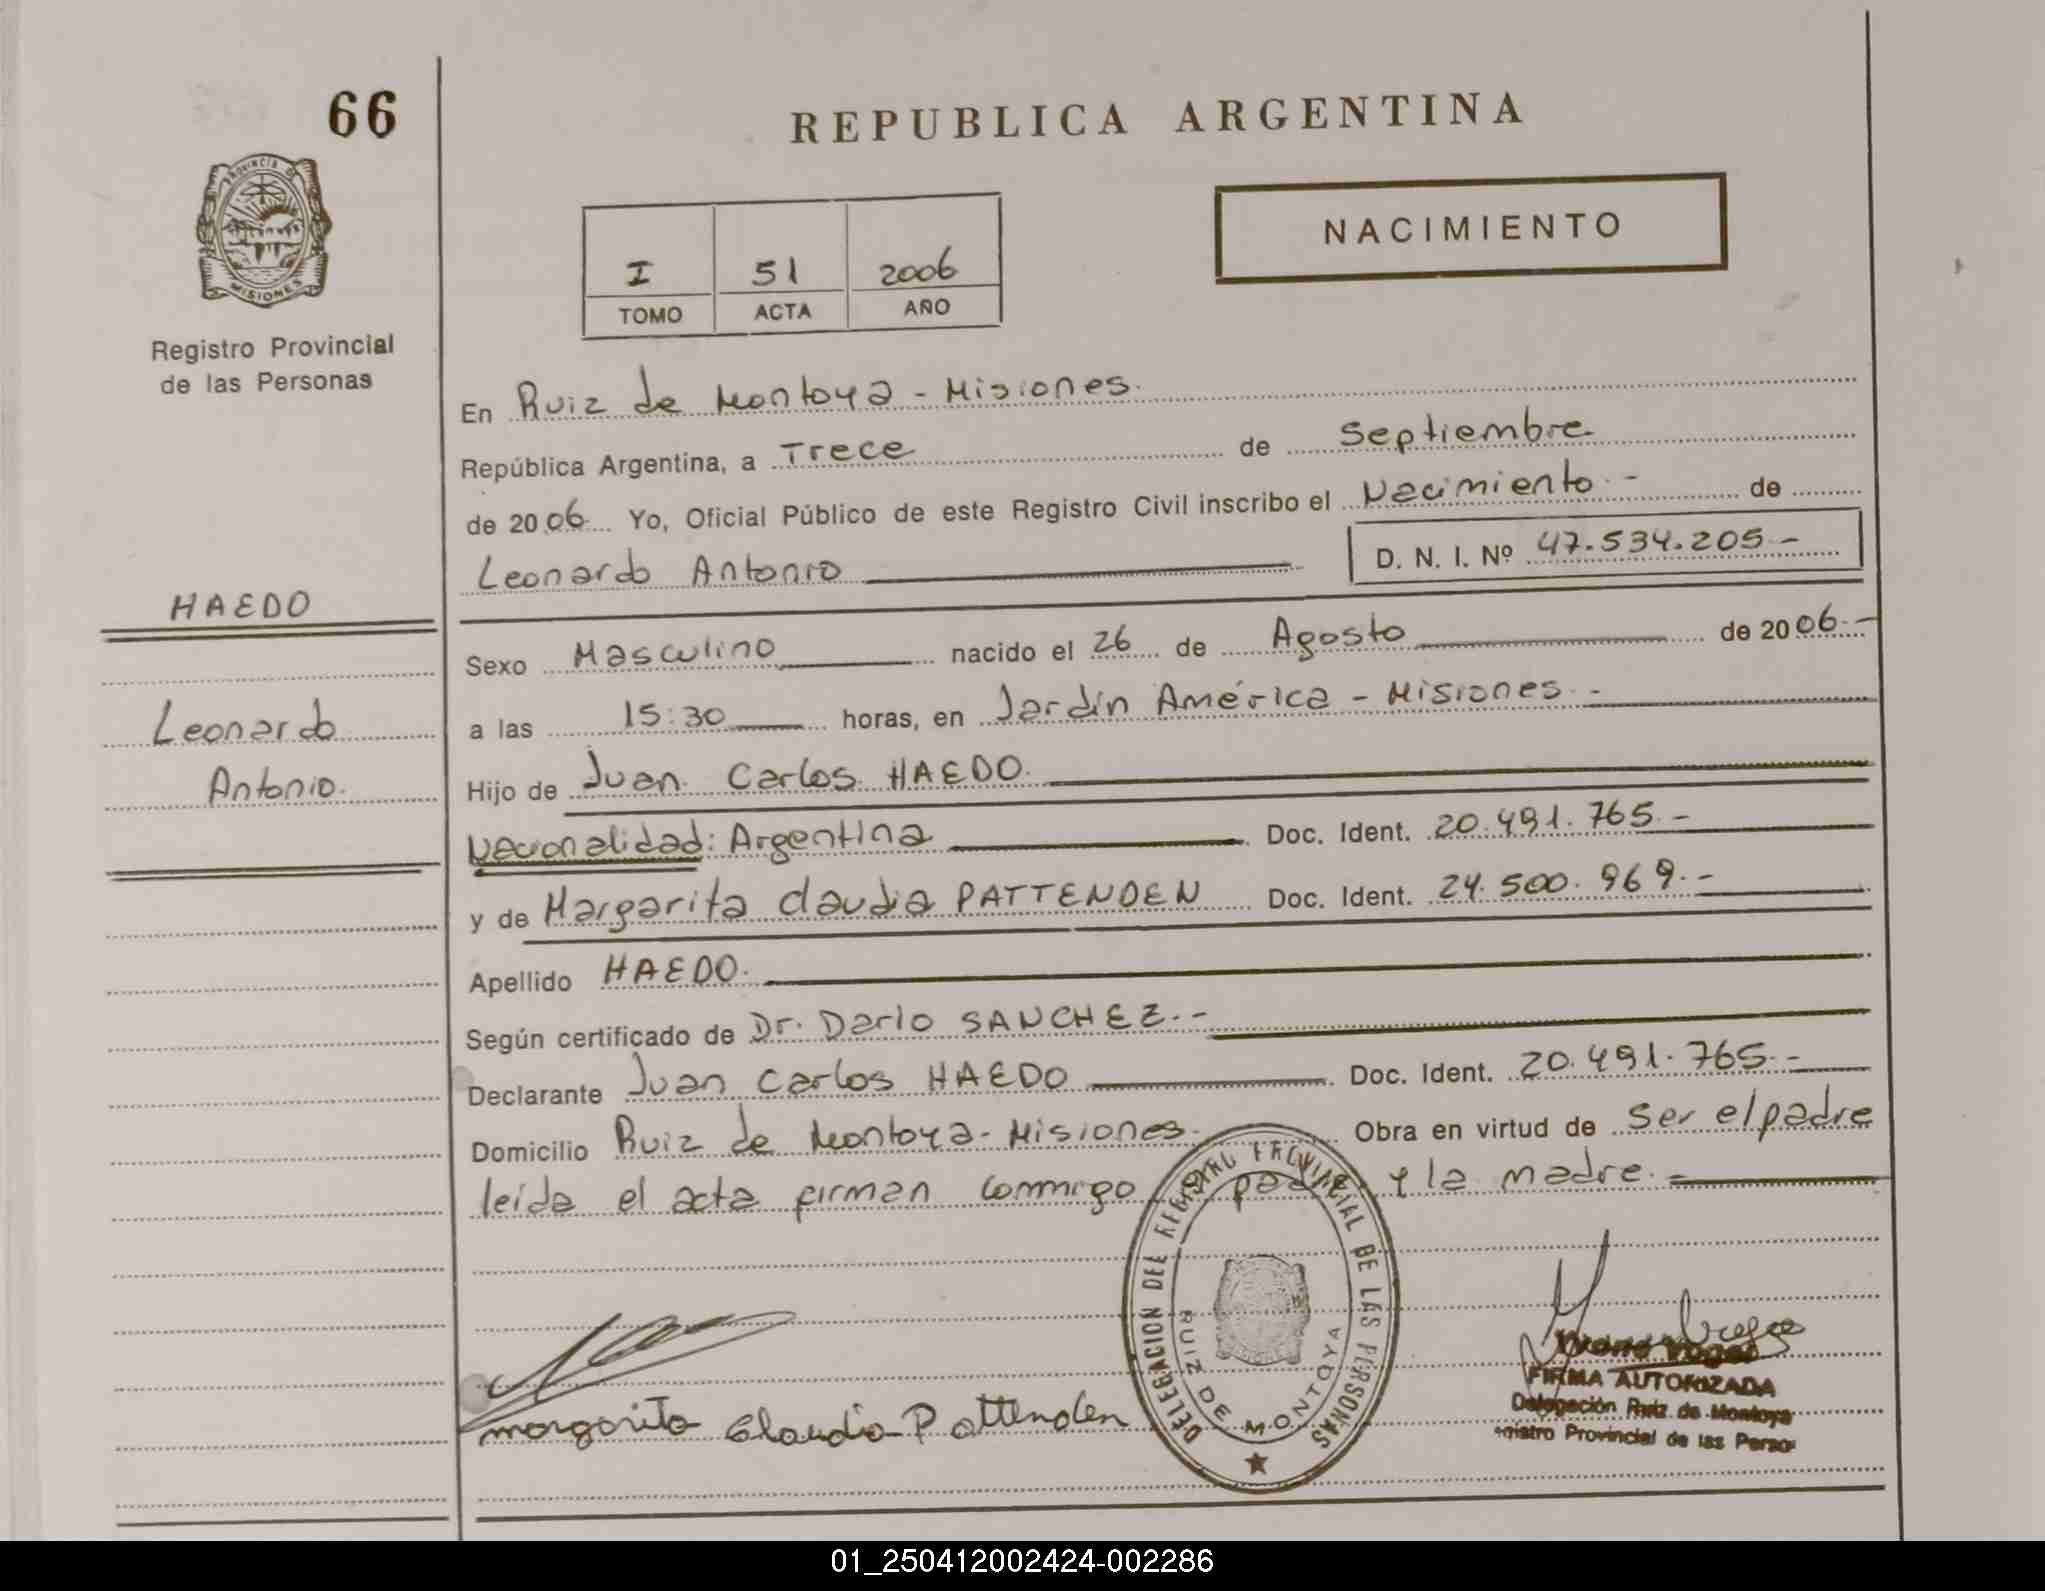 66
REPUBLICA ARGENTINA
PROVINCIA DE
MISIONES
NACIMIENTO
I 51 2006
TOMO ACTA AÑO
Registro Provincial
de las Personas
En Ruiz de Montoya - Misiones.
República Argentina, a Trece de Septiembre
de 2006 Yo, Oficial Público de este Registro Civil inscribo el Nacimiento.- de
Leonardo Antonio D. N. I. Nº 47.534.205-
HAEDO
Sexo Masculino nacido el 26 de Agosto de 2006.-
Leonardo
a las 15:30 horas, en Jardín América - Misiones.-
Antonio.
Hijo de Juan Carlos HAEDO.
Nacionalidad: Argentina Doc. Ident. 20.491.765.-
y de Margarita Claudia PATTENDEN Doc. Ident. 24.500.969.-
Apellido HAEDO.
Según certificado de Dr. Darío SANCHEZ.-
Declarante Juan Carlos HAEDO Doc. Ident. 20.491.765.-
Domicilio Ruiz de Montoya - Misiones. Obra en virtud de ser el padre
leída el acta firman conmigo el padre y la madre.
DELEGACION DEL REGISTRO PROVINCIAL DE LAS PERSONAS
RUIZ DE MONTOYA
FIRMA AUTORIZADA
Delegación Ruiz de Montoya
Margarita Claudia Pattenden
Provincial de las
01_250412002424-002286